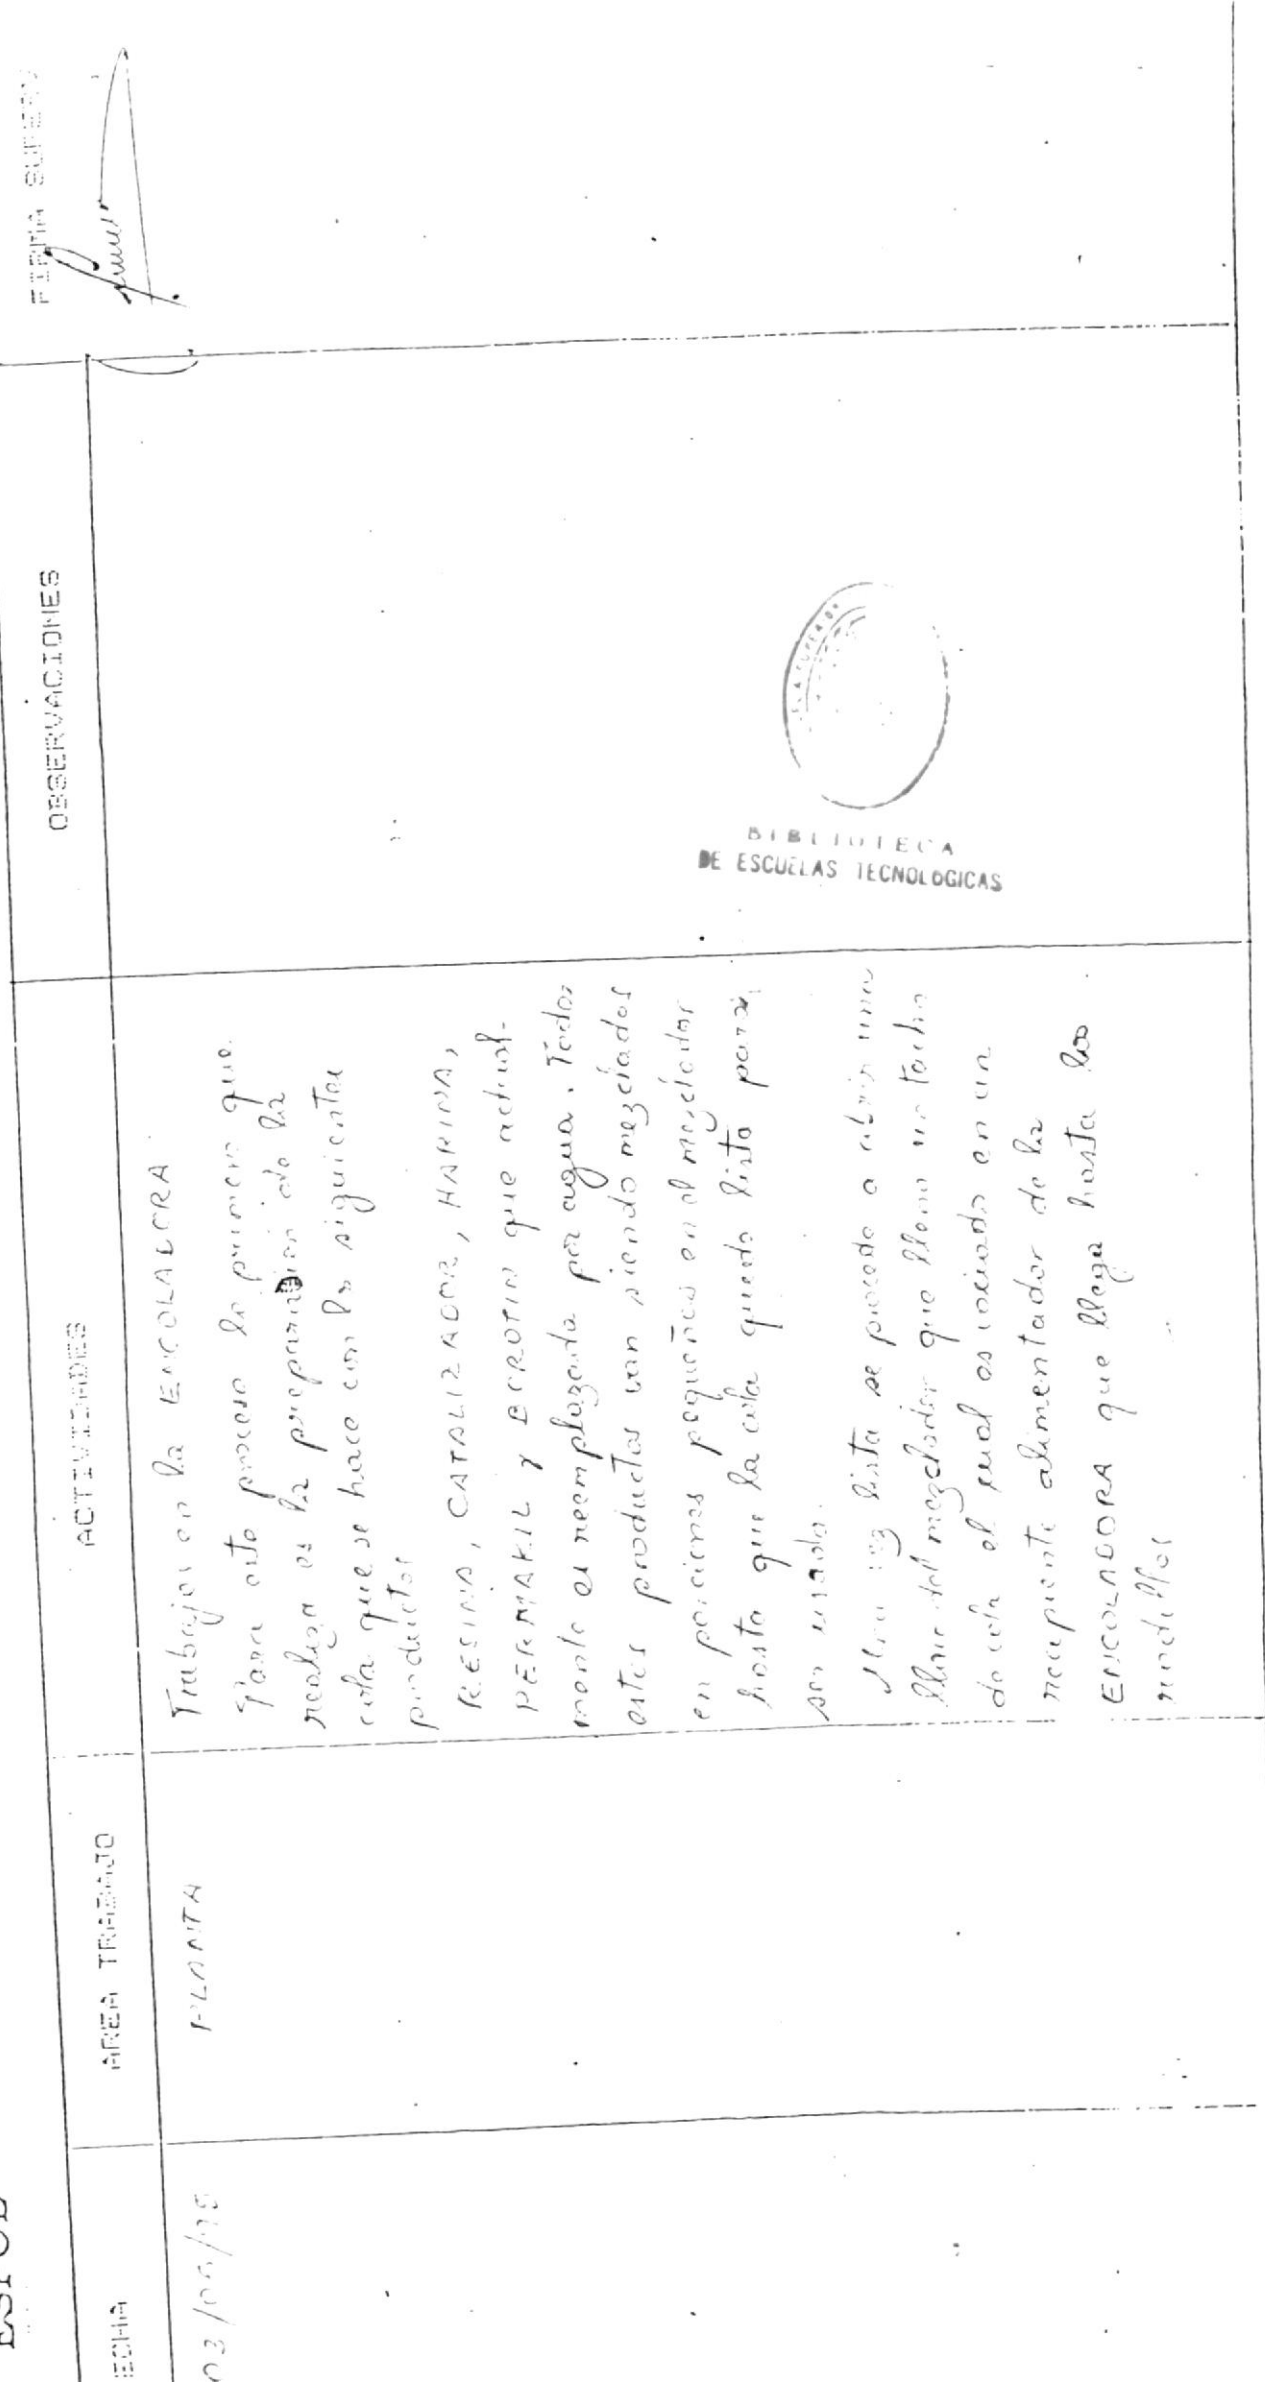 ESPOL
FECHA
AREA TRABAJO
ACTIVIDADES
OBSERVACIONES
FIRMA
PLANTA
Trabajos en la ENCOLADORA
Para este proceso lo primero que
realiza es la preparación de la
cola que se hace con los siguientes
productos
RESINA, CATALIZADOR, HARINA,
PERMAKIL y BOROTIN que actual-
mente es reemplazada por agua. Todos
estos productos van siendo mezclados
en porciones pequeñas en el mezclador
hasta que la cola queda lista para
ser usada.
Una vez lista se procede a abrir una
llave del mezclador que llena un tacho
de cola el cual es vaciado en un
recipiente alimentador de la
ENCOLADORA que llega hasta los
rodillos
BIBLIOTECA
DE ESCUELAS TECNOLOGICAS